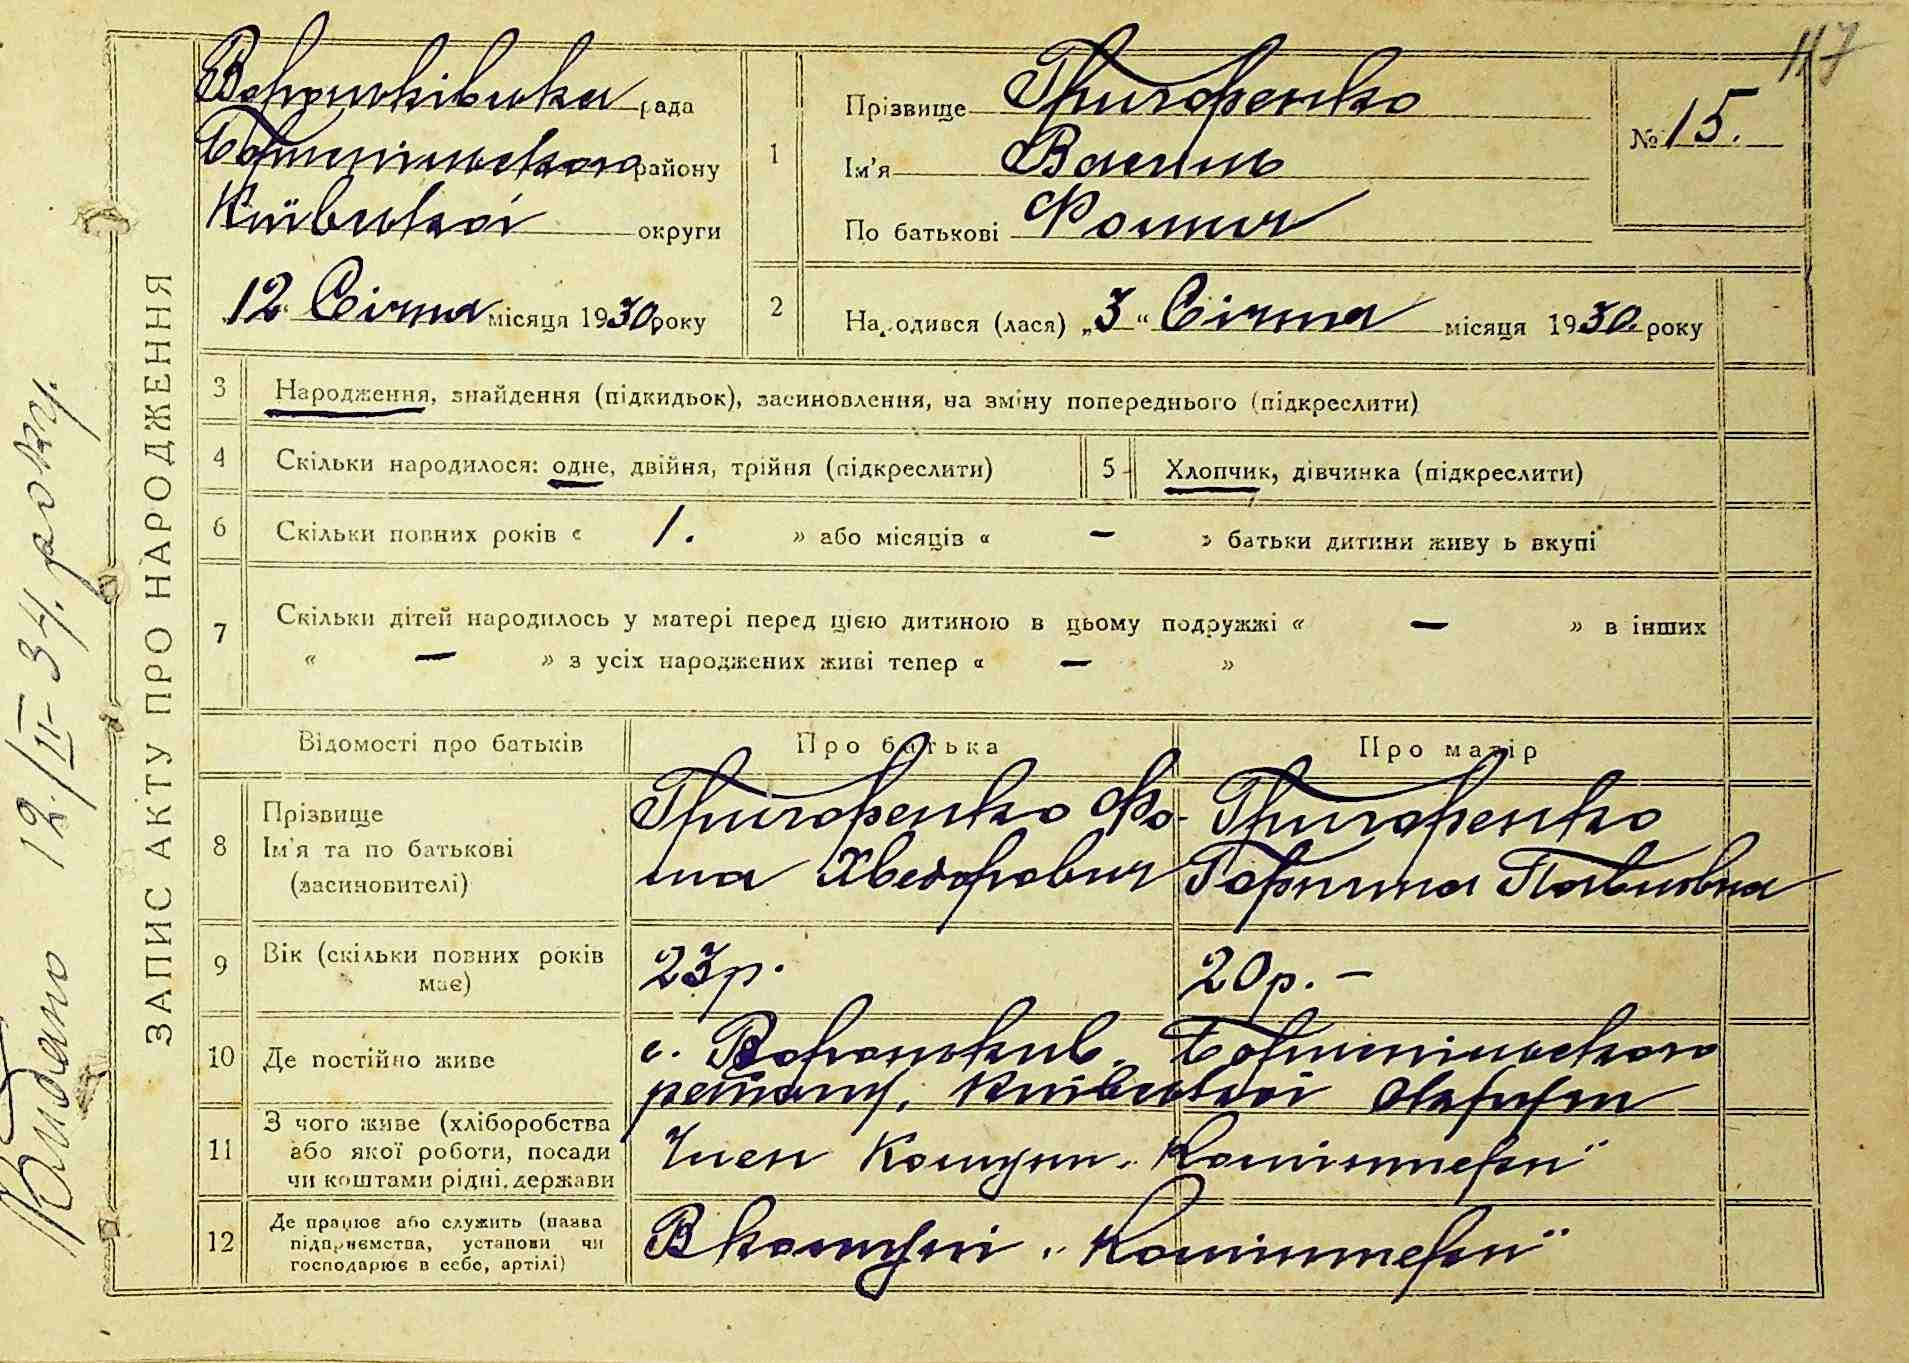 117
Вороньківська рада
Бориспільського району
Київської округи
12 Січня місяця 1930 року
1
Прізвище Григоренко
Ім'я Василь
По батькові Фомич
№ 15.
2
Народився (лася) „3“ Січня місяця 1930 року
ЗАПИС АКТУ ПРО НАРОДЖЕННЯ
Видано 12/III-34. року.
3 Народження, знайдення (підкидьок), засиновлення, на зміну попереднього (підкреслити)
4 Скільки народилося: одне, двійня, трійня (підкреслити) 5 Хлопчик, дівчинка (підкреслити)
6 Скільки повних років « 1. » або місяців « – » батьки дитини живу ь вкупі
7 Скільки дітей народилось у матері перед цією дитиною в цьому подружжі « – » в інших
« – » з усіх народжених живі тепер « – »
Відомості про батьків Про батька Про матір
8 Прізвище
Ім'я та по батькові
(засиновителі)
Григоренко Фо-
ма Хведорович
Григоренко
Горпина Павловна
9 Вік (скільки повних років
має)
23р.
20р. –
10 Де постійно живе
с. Вороньків, Бориспільського
району, Київської округи
11 З чого живе (хліборобства
або якої роботи, посади
чи коштами рідні, держави
Член Комуни „Комінтерн"
12 Де працює або служить (назва
підприємства, установи чи
господарює в себе, артілі)
В комуні „Комінтерн"